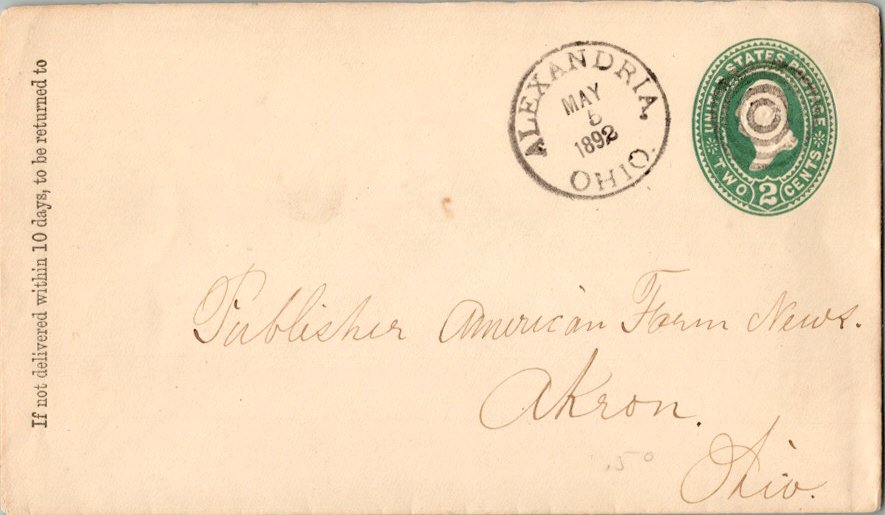 If not delivered within 10 days, to be returned to
ALEXANDRIA,
MAY
5
1892
OHIO.
UNITED STATES POSTAGE
TWO 2 CENTS
Publisher American Farm News.
Akron.
Ohio.
.50